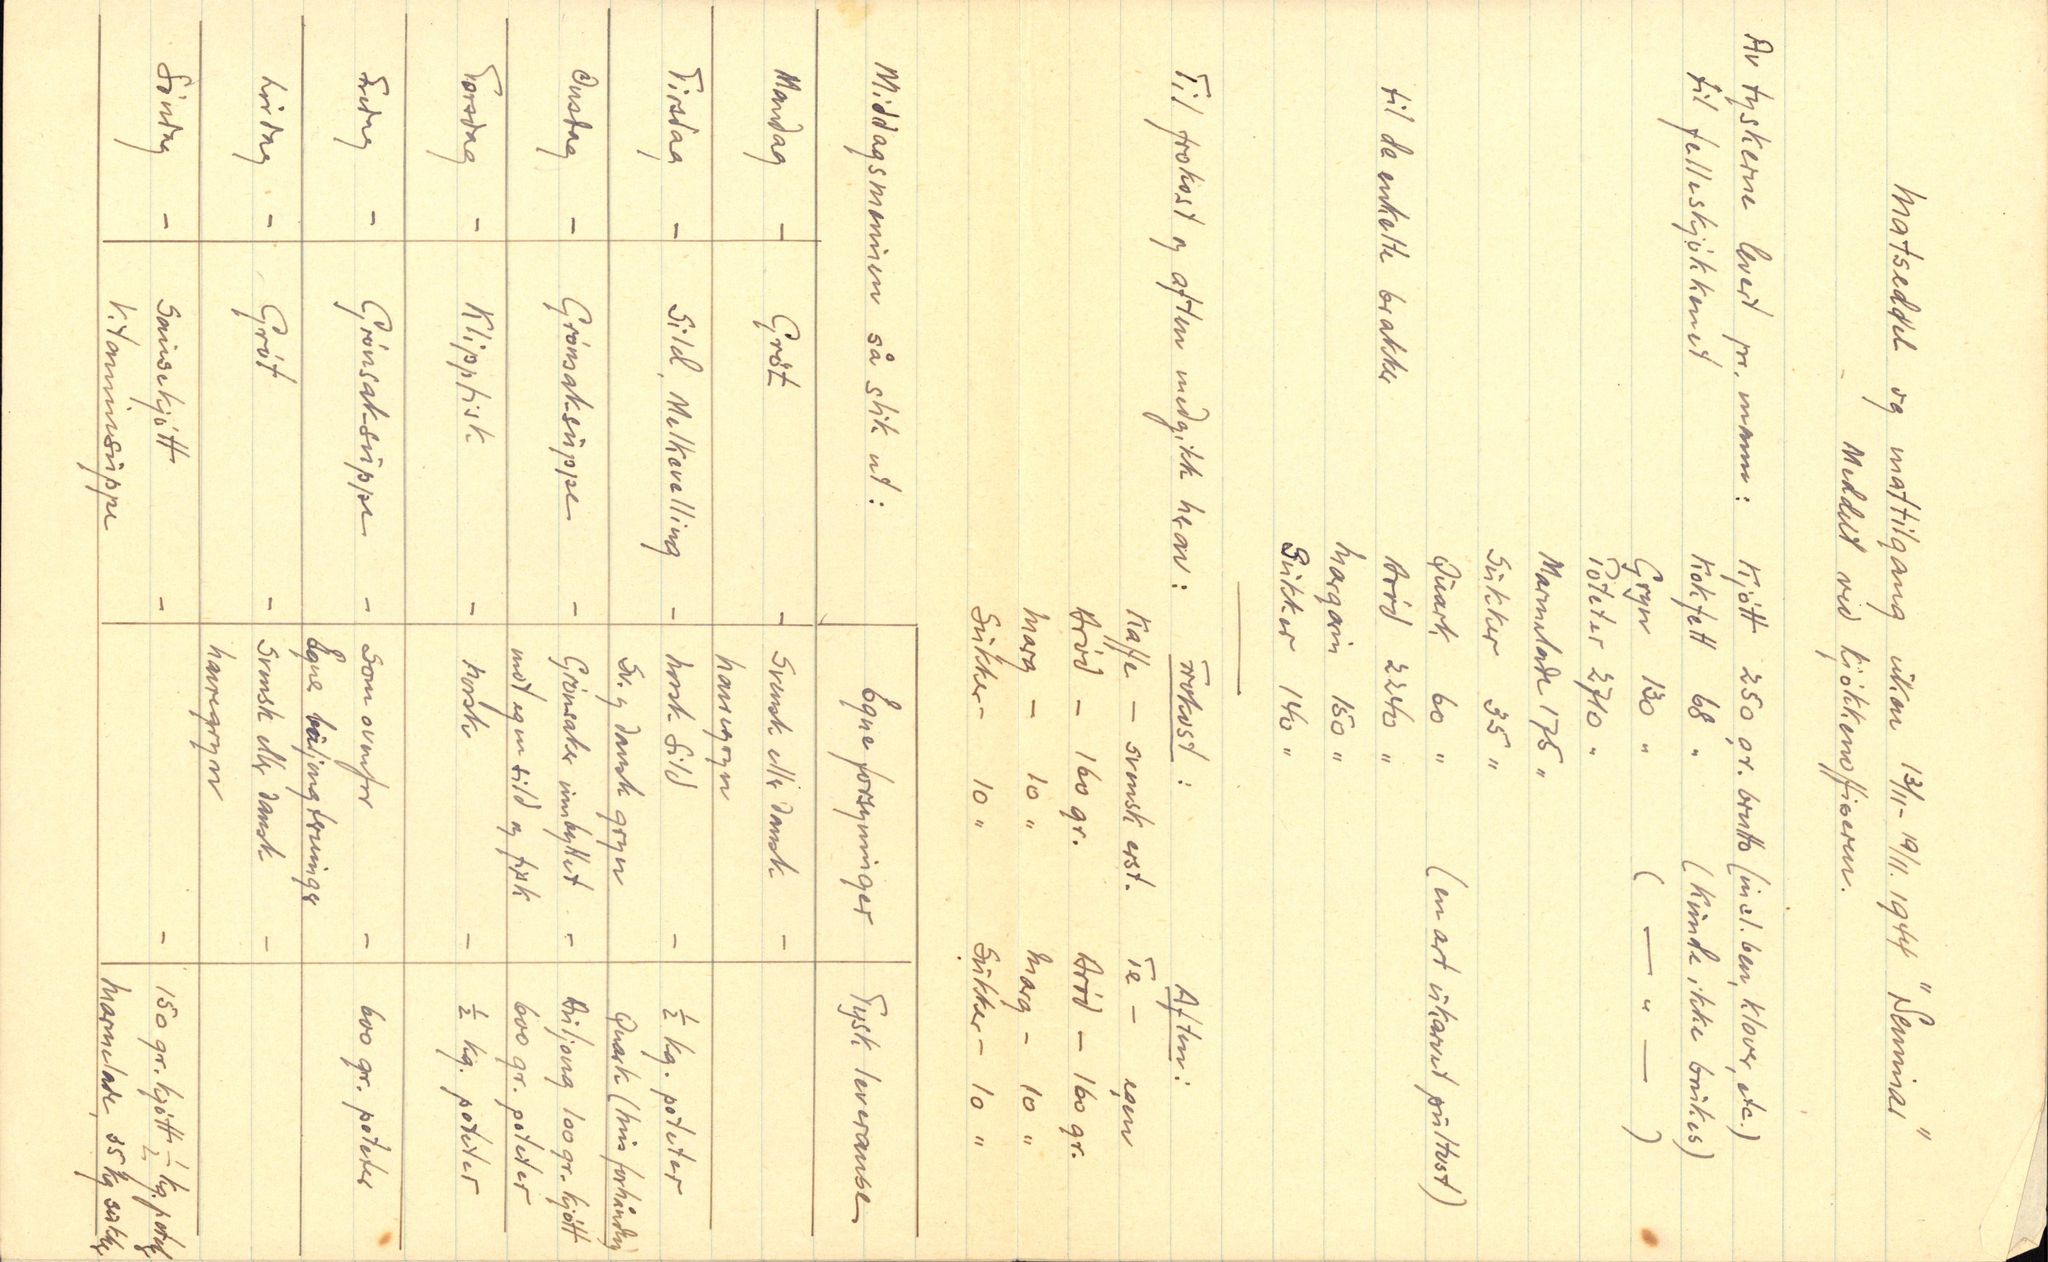 Matseddel og mattilgang uken 13/11 - 19/11. 1944 "Seminar"
Meddelt ved kjøkkenoffiseren.
Av tyskerne levert pr. mann: Kjött 250 gr. brutto (incl. ben, klover, etc.)
til felleskjøkkenet Kokfett 68 " (Kunde ikke brukes)
Gryn 130 " ( — " — )
Poteter 2710 "
Marmelade 175 "
Sukker 35 "
til de enkelte brakker Quark 60 " (en art ukarnet pultost)
Brød 2240 "
Margarin 150 "
Sukker 140 "
Til frokost og aften medgikk herav: Frokost: Aften:
Kaffe - svensk erst. Te - egen
Brød - 160 gr. Brød - 160 gr.
Marg - 10 " Marg - 10 "
Sukker - 10 " Sukker - 10 "
Middagsmenuen så slik ut: Egne forsyninger Tysk leveranse
Mandag - Gröt - Svensk eller dansk -
havregryn
Tirsdag - Sild, Melkevelling - norsk Sild - ½ kg. poteter
Sv. og dansk gryn Quark (hvis forhånden)
Onsdag - Grönsaksuppe - Grönsaker innbyttet - Buljong 100 gr. kjött
mot egen sild og fisk 600 gr. poteter
Torsdag - Klippfisk - norsk - ½ kg. poteter
Fredag - Grönsaksuppe - Som ovenfor - 600 gr. poteter
Egne buljongterninger
Lördag - Gröt - Svensk eller dansk -
havregryn
Söndag - Sausekjött - - 150 gr. kjött ½ kg. poteter
Vitaminsuppe marmelade, 35